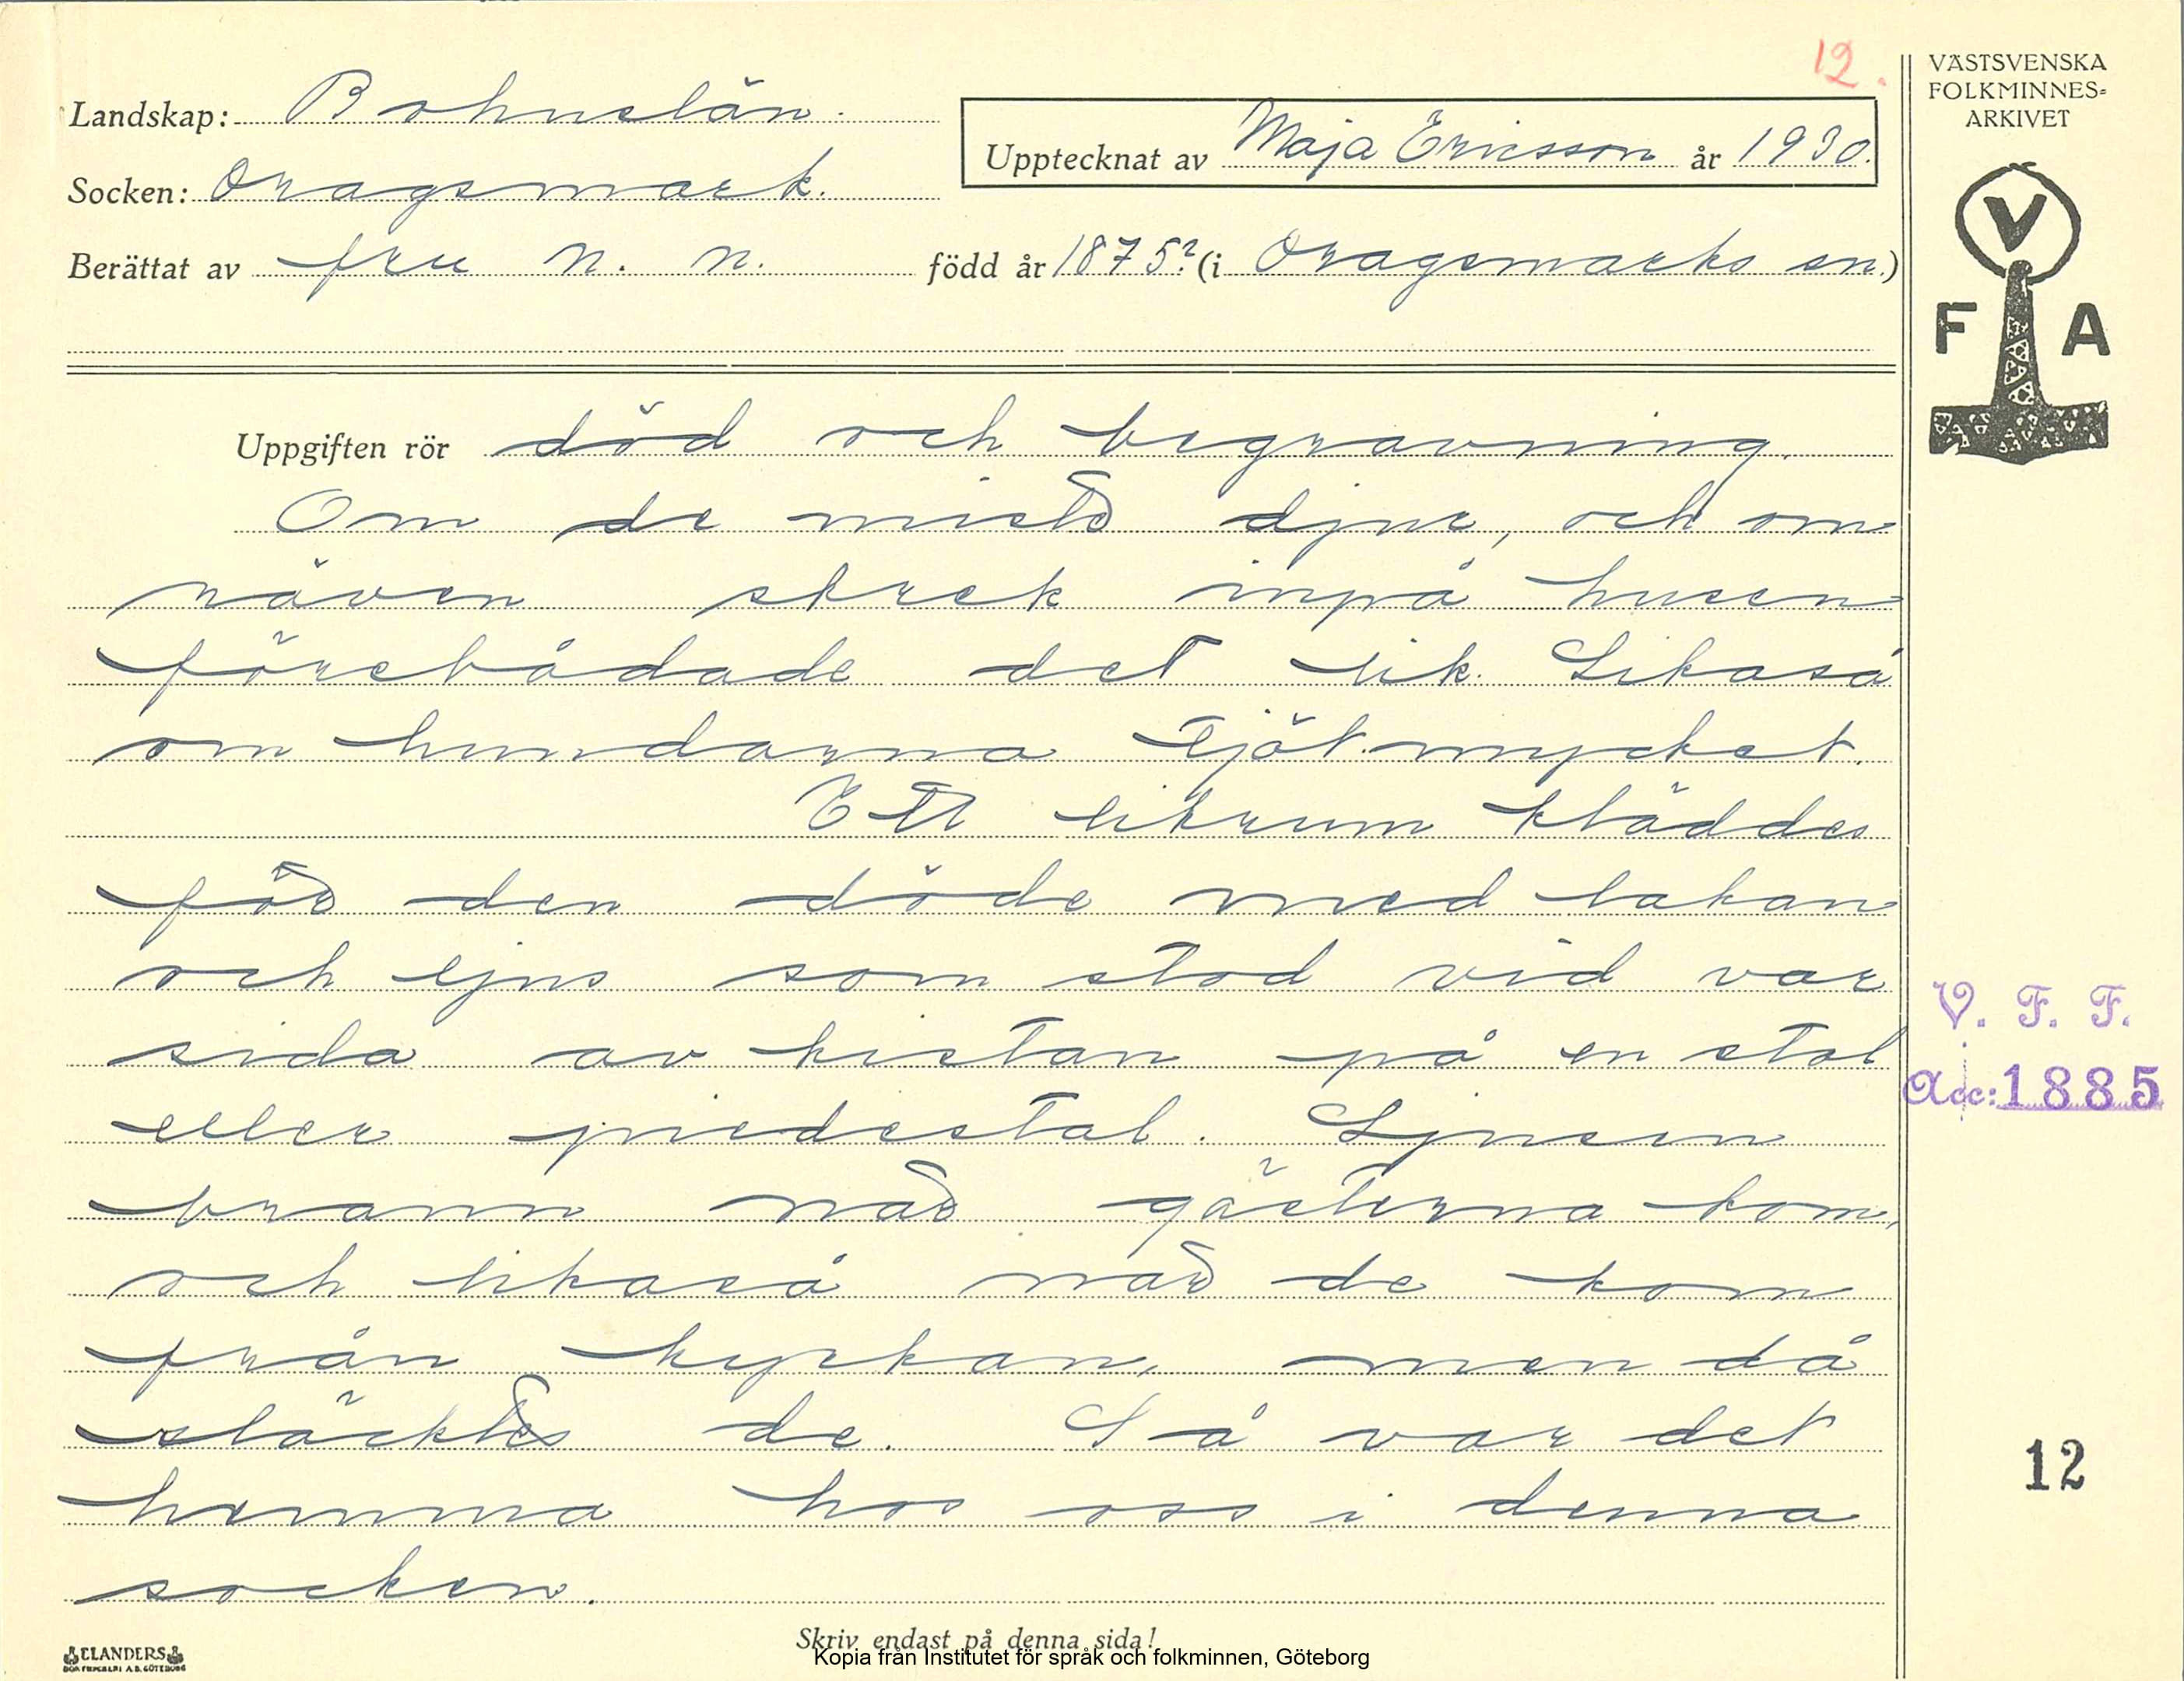 12.
Landskap: Bohuslän.
Upptecknat av Maja Ericsson år 1930.
Socken: Dragsmark.
Berättat av fru N. N. född år 1875? (i Dragsmarks sn.)
VÄSTSVENSKA
FOLKMINNES-
ARKIVET
V
F A
Uppgiften rör död och begravning.
Om de miste djur, och om
räven skrek inpå husen
förebådade det lik. Likaså
om hundarna tjöt mycket.
Ett likrum kläddes
för den döde med lakan
och ljus som stod vid var
sida av kistan på en stol
eller piedestal. Ljusen
brann när gästerna kom,
och likaså när de kom
från kyrkan, men då
släcktes de. Så var det
hemma hos oss i denna
socken.
V. F. F.
Acc: 1885
12
Skriv endast på denna sida!
Kopia från Institutet för språk och folkminnen, Göteborg
ELANDERS